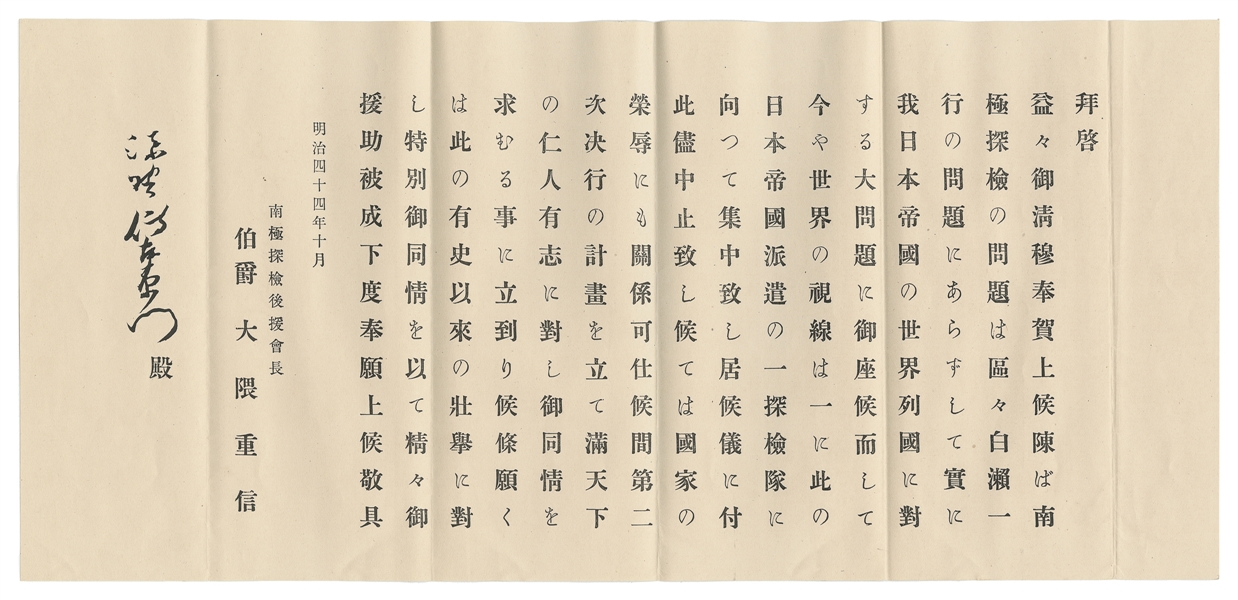 拜啓
益々御淸穆奉賀上候陳ば南
極探檢の問題は區々白瀨一
行の問題にあらずして實に
我日本帝國の世界列國に對
する大問題に御座候而して
今や世界の視線は一に此の
日本帝國派遣の一探檢隊に
向つて集中致し居候儀に付
此儘中止致し候ては國家の
榮辱にも關係可仕候間第二
次決行の計畫を立て滿天下
の仁人有志に對し御同情を
求むる事に立到り候條願く
は此の有史以來の壯擧に對
し特別御同情を以て精々御
援助被成下度奉願上候敬具
明治四十四年十月
南極探檢後援會長
伯爵 大隈重信
左衞門 殿